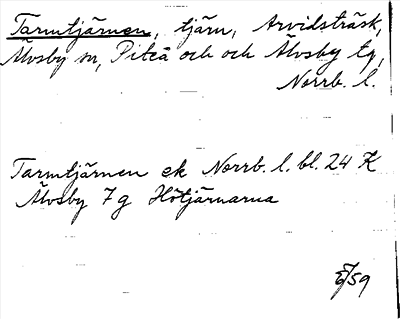 Tarmtjärnen, tjärn, Arvidsträsk,
Älvsby sn, Piteå och och Älvsby tg,
Norrb. l.
Tarmtjärnen ek Norrb. l. bl. 24 K
Älvsby 7 g Hötjärnarna
/59